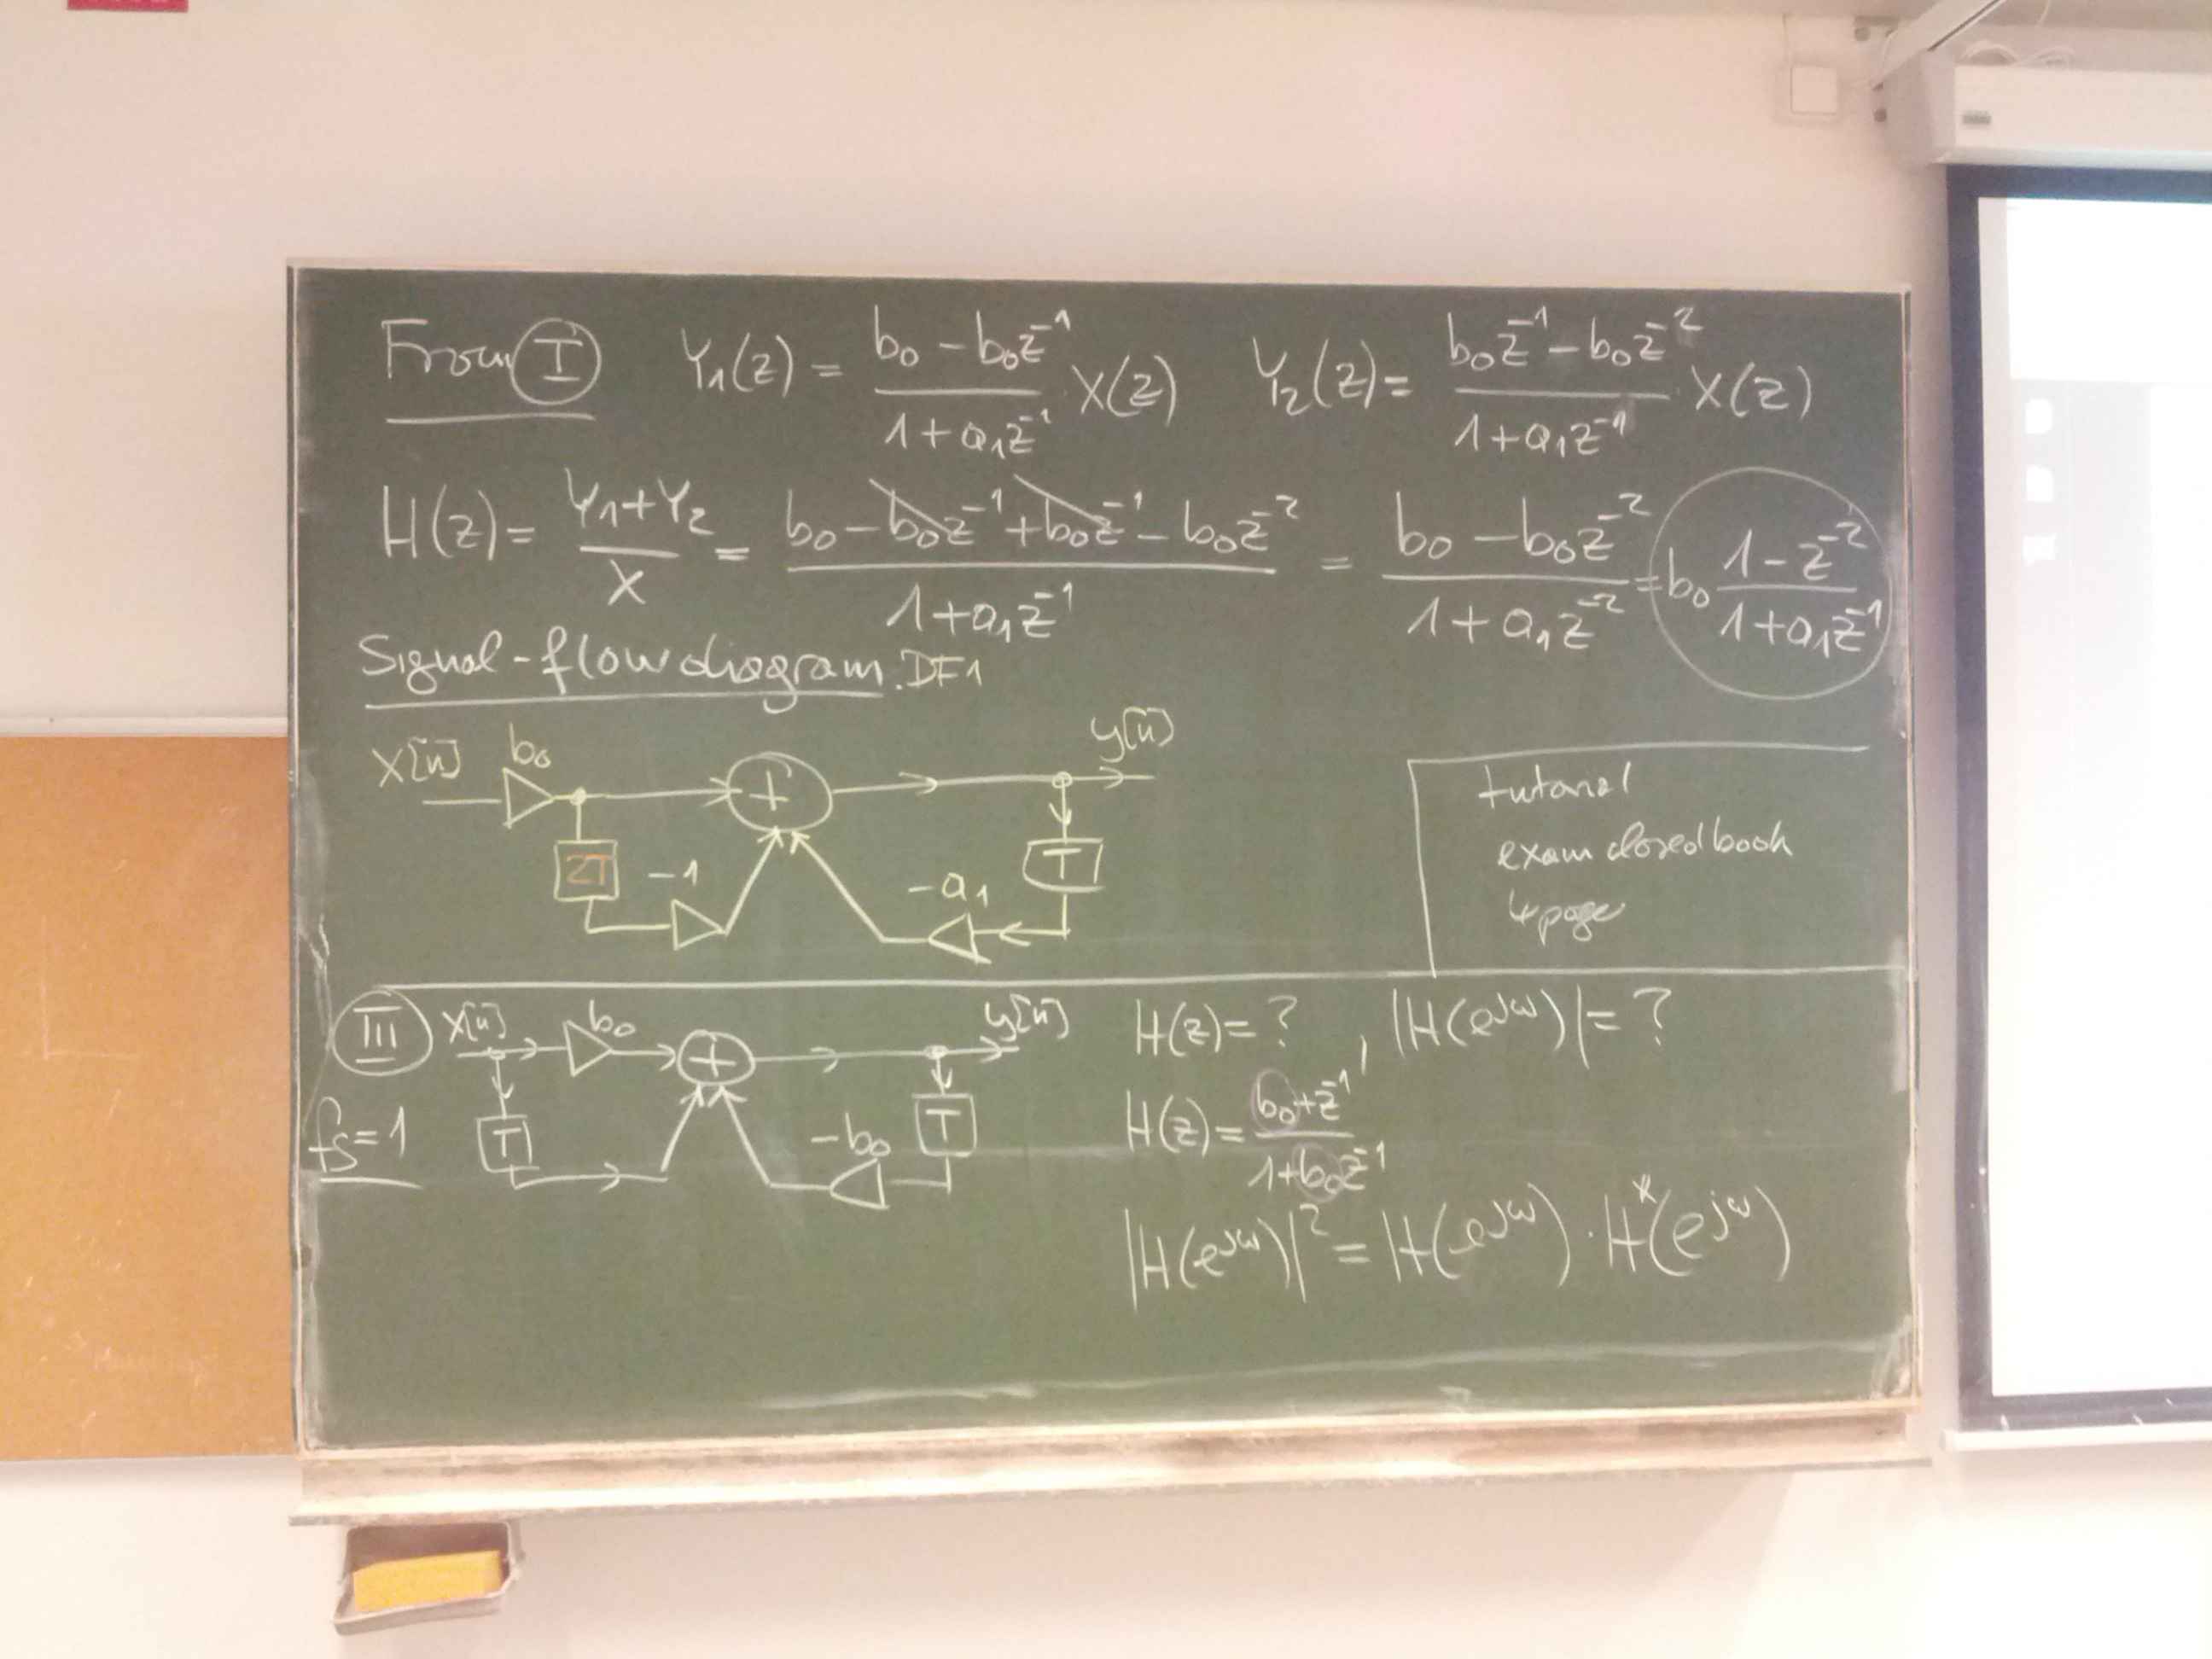 From I Y₁(z) = (b₀ - b₀z⁻¹)/(1 + a₁z⁻¹) X(z) Y₂(z) = (b₀z⁻¹ - b₀z⁻²)/(1 + a₁z⁻¹) X(z)
H(z) = (Y₁+Y₂)/X = (b₀ - b₀z⁻¹ + b₀z⁻¹ - b₀z⁻²)/(1 + a₁z⁻¹) = (b₀ - b₀z⁻²)/(1 + a₁z⁻²) = b₀ (1 - z⁻²)/(1 + a₁z⁻¹)
Signal-flow diagram. DF1
x[n] b₀ + y[n]
2T -1 -a₁ T
tutorial
exam closed book
4 page
III x[n] b₀ + y[n]
fs=1 T -b₀ T
H(z) = ? , |H(e^jω)| = ?
H(z) = (b₀ + z⁻¹)/(1 + b₀z⁻¹)
|H(e^jω)|² = H(e^jω) · H*(e^jω)